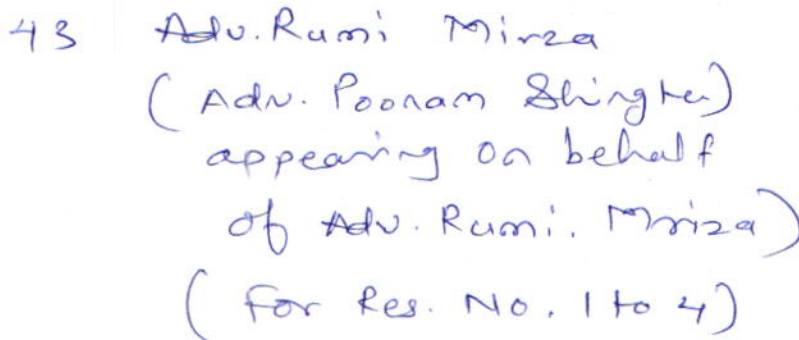 43 Adv. Rumi Mirza
(Adv. Poonam Shingte)
appearing on behalf
of Adv. Rumi. Mriza)
(For Res. No. 1 to 4)